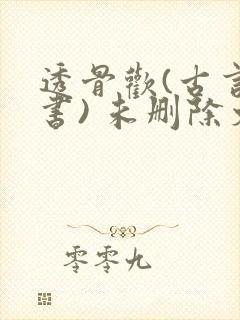 透骨歡(古言
書)未删除
零零九